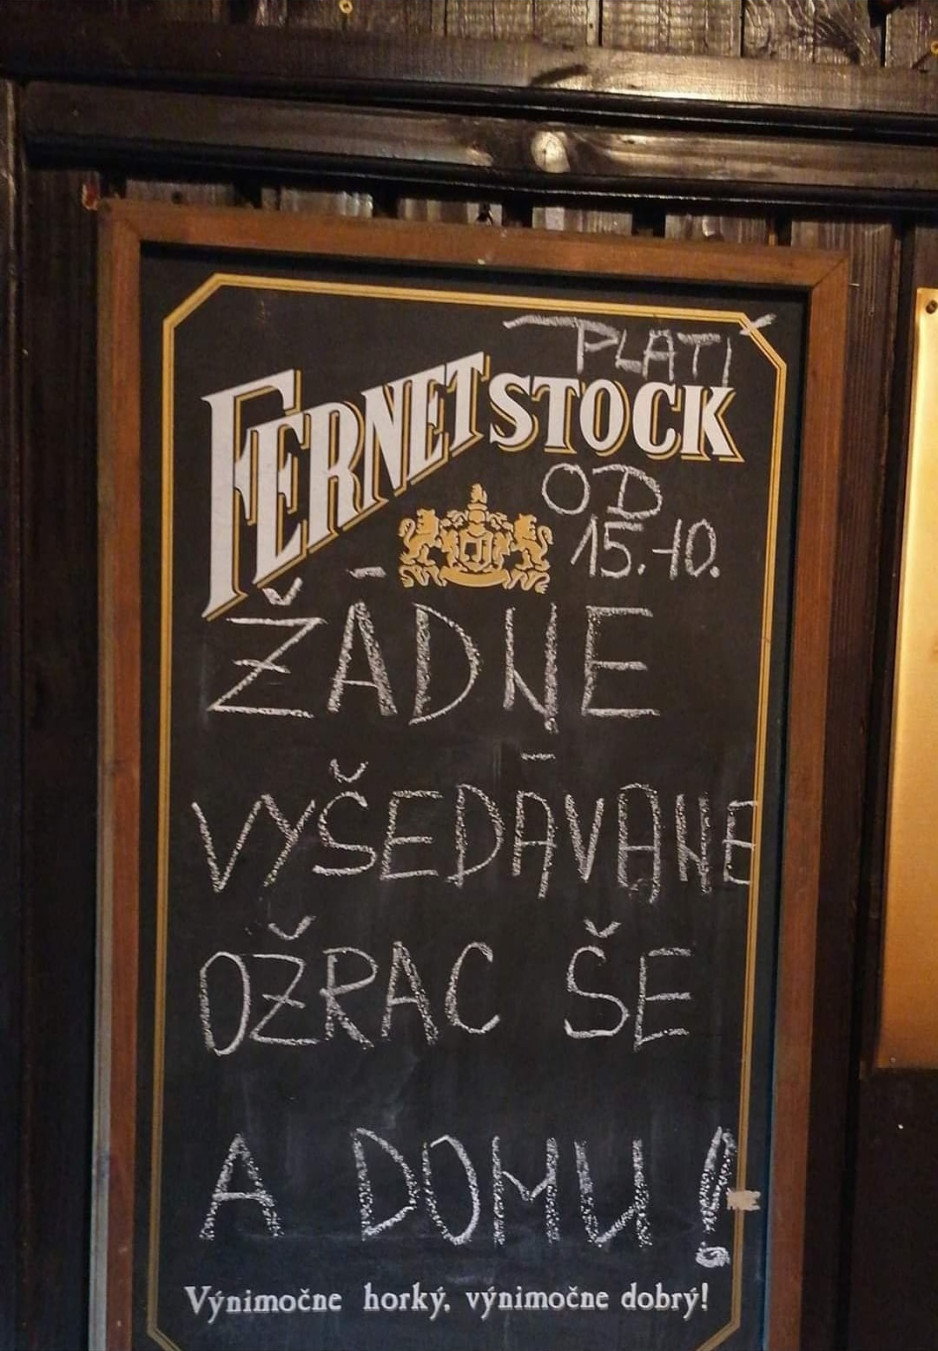 PLATÍ
FERNET STOCK
OD
15.-10.
ŽÁDNE
VYŠEDÁVANE
OŽRAC ŠE
A DOMU!
Výnimočne horký, výnimočne dobrý!